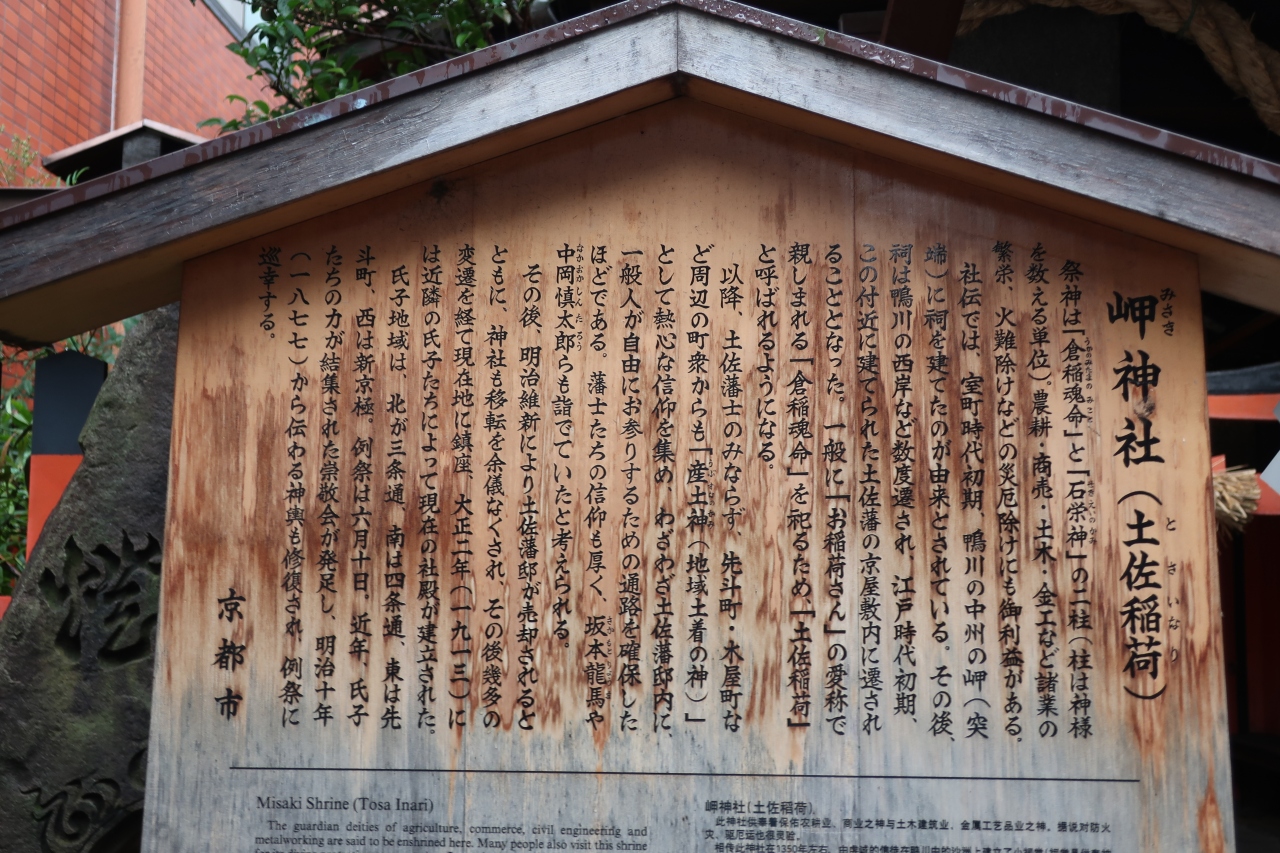 岬神社（土佐稲荷）
祭神は「倉稲魂命」と「石栄神」の二柱（柱は神様
を数える単位）。農耕・商売・土木・金工など諸業の
繁栄、火難除けなどの災厄除けにも御利益がある。
社伝では、室町時代初期、鴨川の中州の岬（突
端）に祠を建てたのが由来とされている。その後、
祠は鴨川の西岸など数度遷され、江戸時代初期、
この付近に建てられた土佐藩の京屋敷内に遷され
ることとなった。一般に「お稲荷さん」の愛称で
親しまれる「倉稲魂命」を祀るため「土佐稲荷」
と呼ばれるようになる。
以降、土佐藩士のみならず、先斗町・木屋町な
ど周辺の町衆からも「産土神（地域土着の神）」
として熱心な信仰を集め、わざわざ土佐藩邸内に
一般人が自由にお参りするための通路を確保した
ほどである。藩士たちの信仰も厚く、坂本龍馬や
中岡慎太郎らも詣でていたと考えられる。
その後、明治維新により土佐藩邸が売却されると
ともに、神社も移転を余儀なくされ、その後幾多の
変遷を経て現在地に鎮座、大正二年（一九一三）に
は近隣の氏子たちによって現在の社殿が建立された。
氏子地域は、北が三条通、南は四条通、東は先
斗町、西は新京極。例祭は六月十日。近年、氏子
たちの力が結集された崇敬会が発足し、明治十年
（一八七七）から伝わる神輿も修復され、例祭に
巡幸する。
京都市
Misaki Shrine (Tosa Inari)
The guardian deities of agriculture, commerce, civil engineering and
metalworking are said to be enshrined here. Many people also visit this shrine
岬神社（土佐稻荷）
此神社供奉着保佑农耕业、商业之神与土木建筑业、金属工艺品业之神。据说对防火
灾、驱厄运也很灵验。
相传此神社在1350年左右，由虔诚的信徒在鸭川中的沙洲上建立了小祠堂